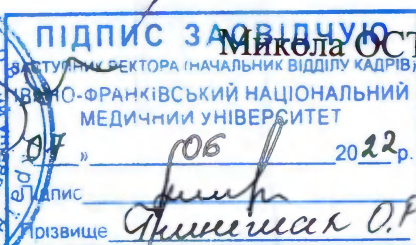 ПІДПИС ЗАСВІДЧУЮ
Микола ОСТ
ЗАСТУПНИК РЕКТОРА (НАЧАЛЬНИК ВІДДІЛУ КАДРІВ)
ІВАНО-ФРАНКІВСЬКИЙ НАЦІОНАЛЬНИЙ
МЕДИЧНИЙ УНІВЕРСИТЕТ
07 » 06 2022 р.
Підпис
Прізвище О.